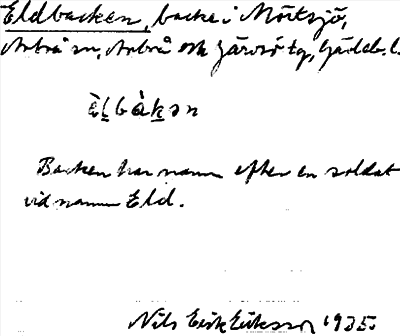 Eldbacken, backe i Mörtsjö,
Arbrå sn, Arbrå och Järvsö tg, Gävleb. l.
èl̳bàk̲ən
Backen har namn efter en soldat
vid namn Eld.
Nils Erik Eriksson 1935.